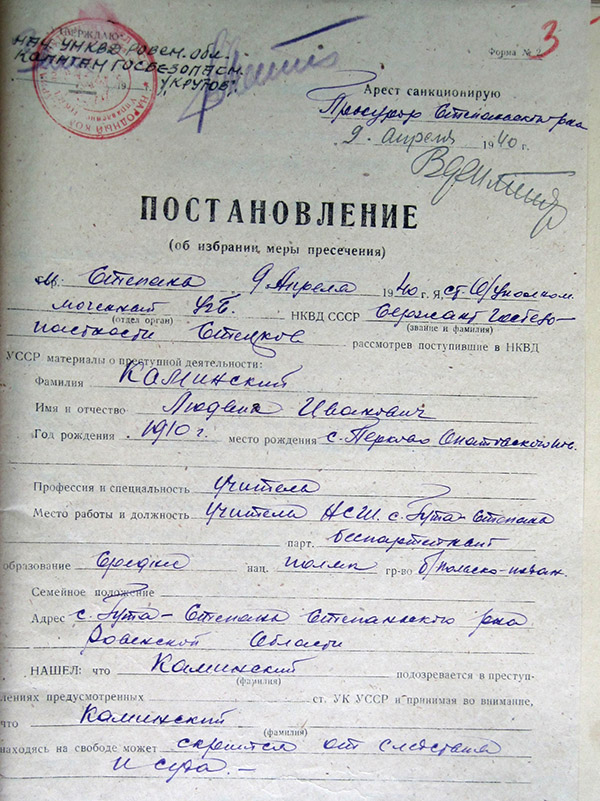 3
Форма № 2
УТВЕРЖДАЮ
НАЧ. УНКВД РОВЕН. ОБЛ.
КАПИТАН ГОСБЕЗОПАСН.
/КРУТОВ/
194
НАРОДНЫЙ КОМ
Арест санкционирую
Прокурор Степанского р-на
9 апреля 1940 г.
ПОСТАНОВЛЕНИЕ
(об избрании меры пресечения)
м. Степань 9 Апреля 1940 г. Я, ст. О/уполном.
моченный УГБ НКВД СССР Сержант Госбезо-
(отдел орган) (звание и фамилия)
пастности Стецков рассмотрев поступившие в НКВД
УССР материалы о преступной деятельности:
Фамилия Каминский
Имя и отчество Людвиг Иванович
Год рождения 1910 г. место рождения с.
Профессия и специальность учитель
Место работы и должность учитель НСШ с. Гута-Степань
парт. беспартейный
образование Средне нац. поляк гр-во б/польско-
Семейное положение
Адрес с. Гута-Степань Степаньского р-на
Ровенской Области
НАШЕЛ: что Каминский подозревается в преступ-
(фамилия)
лениях предусмотренных ст. УК УССР и принимая во внимание,
что Каминский
(фамилия)
находясь на свободе может скрытся от следствия
и суда. —